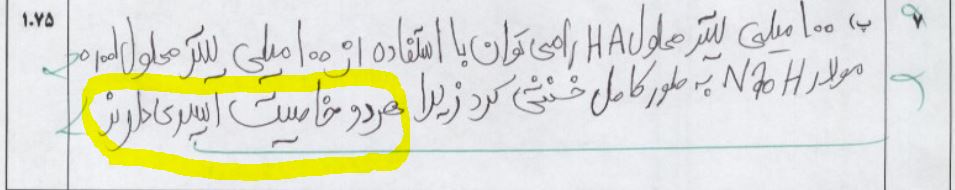 ۱.۷۵
۷
ب) ۱۰۰ میلی لیتر محلول HA را می توان با استفاده از ۱۰۰ میلی لیتر محلول ۰٫۰۰۱
مولار NaOH به طور کامل خنثی کرد زیرا هر دو خاصیت اسیدی دارند